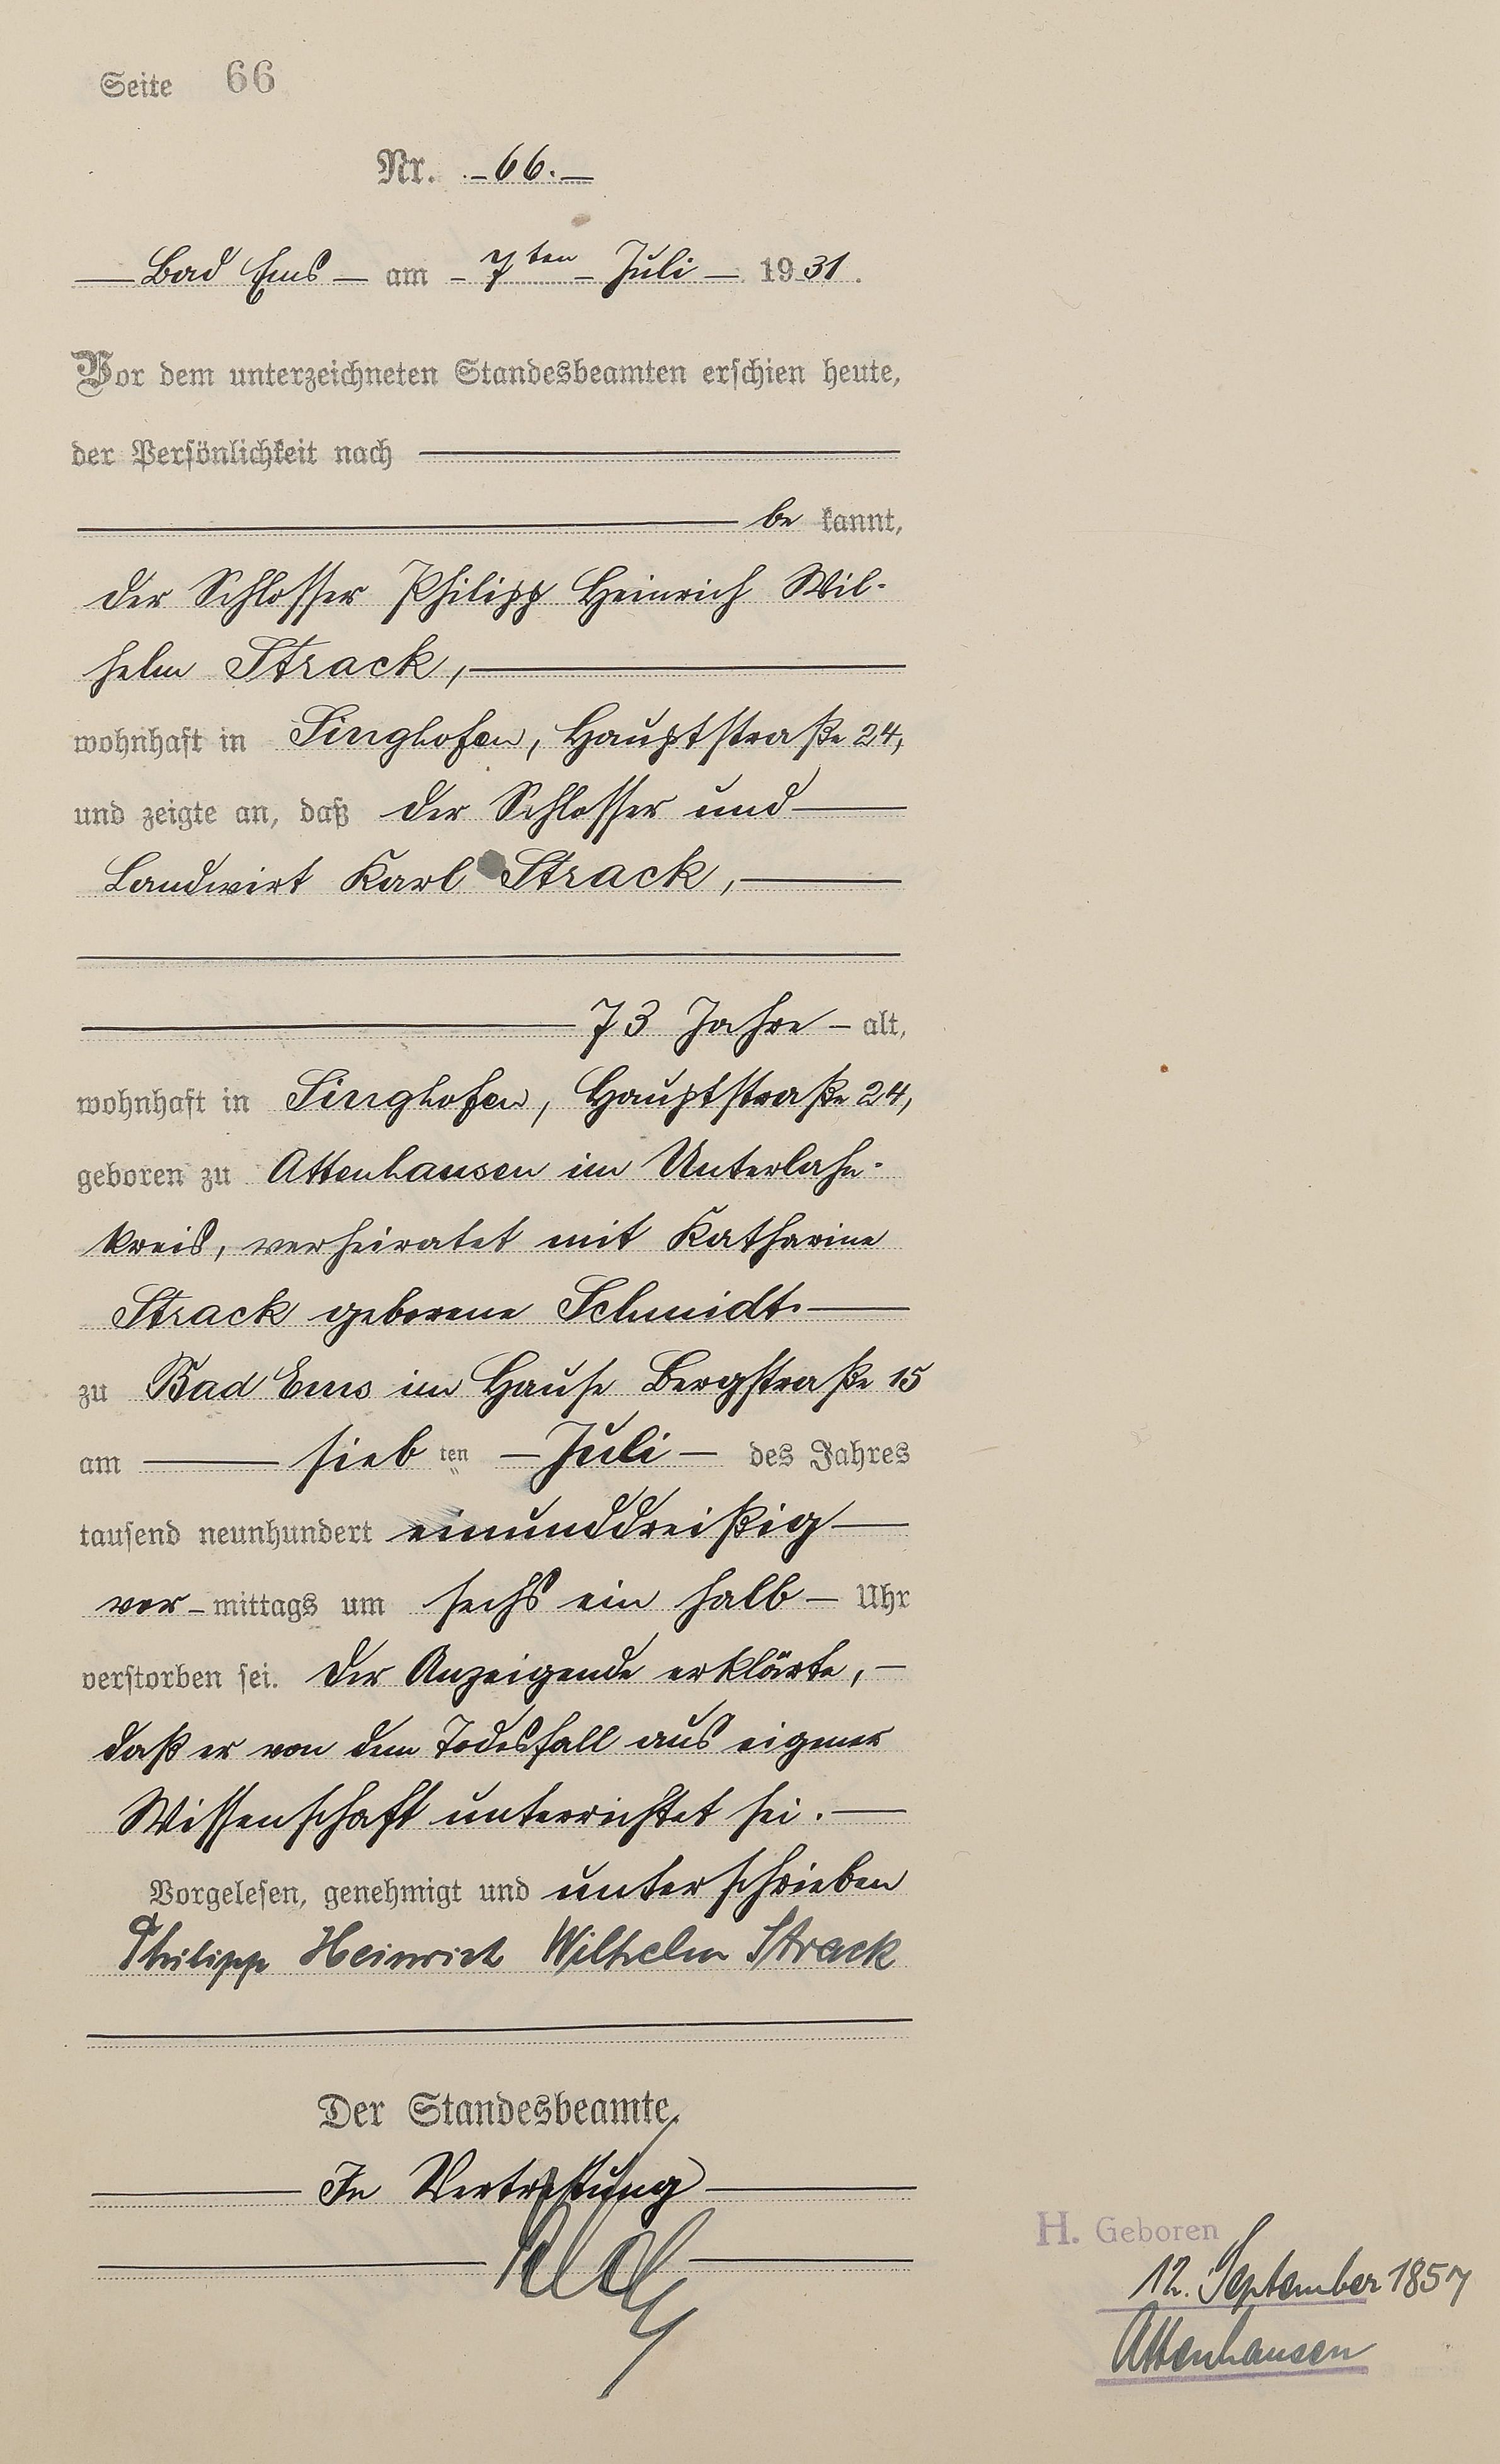 Seite 66
Nr. 66.
Bad Ems am 7ten Juli 1931.
Vor dem unterzeichneten Standesbeamten erschien heute,
der Persönlichkeit nach
be kannt,
der Schlosser Philipp Heinrich Wil-
helm Strack,
wohnhaft in Singhofen, Hauptstraße 24,
und zeigte an, daß der Schlosser und
Landwirt Karl Strack,
73 Jahre alt,
wohnhaft in Singhofen, Hauptstraße 24,
geboren zu Attenhausen im Unterlahn-
kreis, verheiratet mit Katharine
Strack geborene Schmidt.
zu Bad Ems im Hause Bergstraße 15
am siebten Juli des Jahres
tausend neunhundert einunddreißig
vor-mittags um sechs ein halb Uhr
verstorben sei. Der Anzeigende erklärte,
daß er von dem Todesfall aus eigener
Wissenschaft unterrichtet sei.
Vorgelesen, genehmigt und unterschrieben
Philipp Heinrich Wilhelm Strack
Der Standesbeamte.
In Vertretung
H. Geboren
12. September 1857
Attenhausen